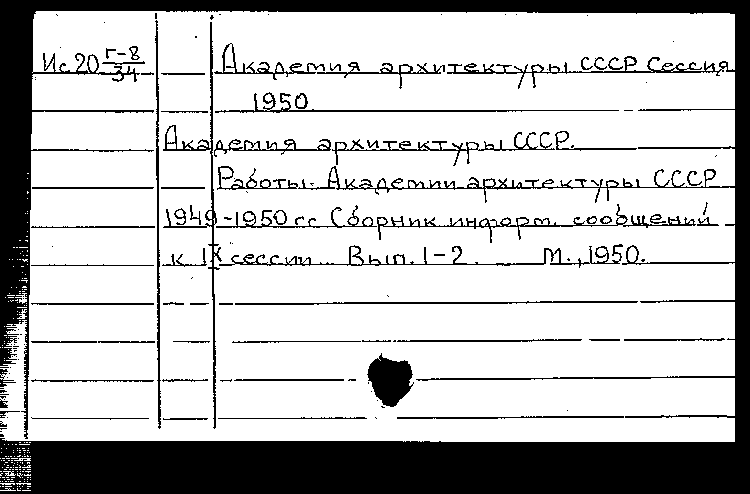 Ис20 Г-8/34 Академия архитектуры СССР Сессия
1950
Академия архитектуры СССР.
Работы Академии архитектуры СССР
1949-1950 гг Сборник информ. сообщений
к IX сессии. Вып. 1-2. М., 1950.